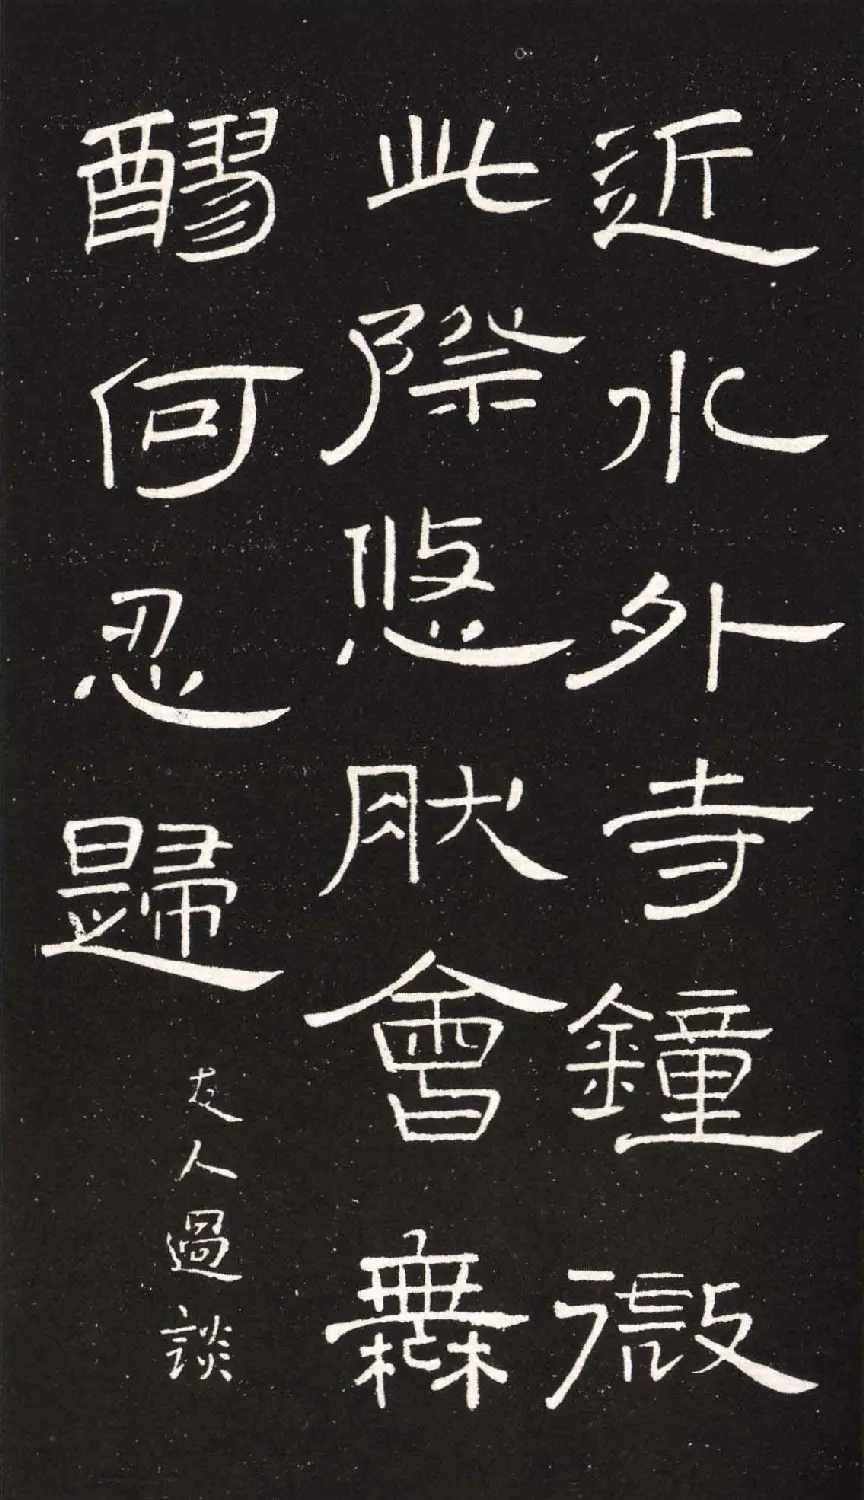 近水外寺鐘微
此際悠肰會無
醪何忍歸
友人過談